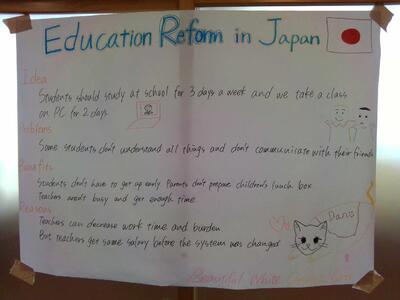 Education Reform in Japan
Idea
Students should study at school for 3 days a week and we take a class
on PC for 2 days
Problems
Some students don't understand all things and don't communicate with their friends
Benefits
Students don't have to get up early Parents don't prepare children's lunch box
Teachers aren't busy and get enough time
Reasons
Teachers can decrease work time and burden
But teachers get same salary before the system was changed
Beautiful White